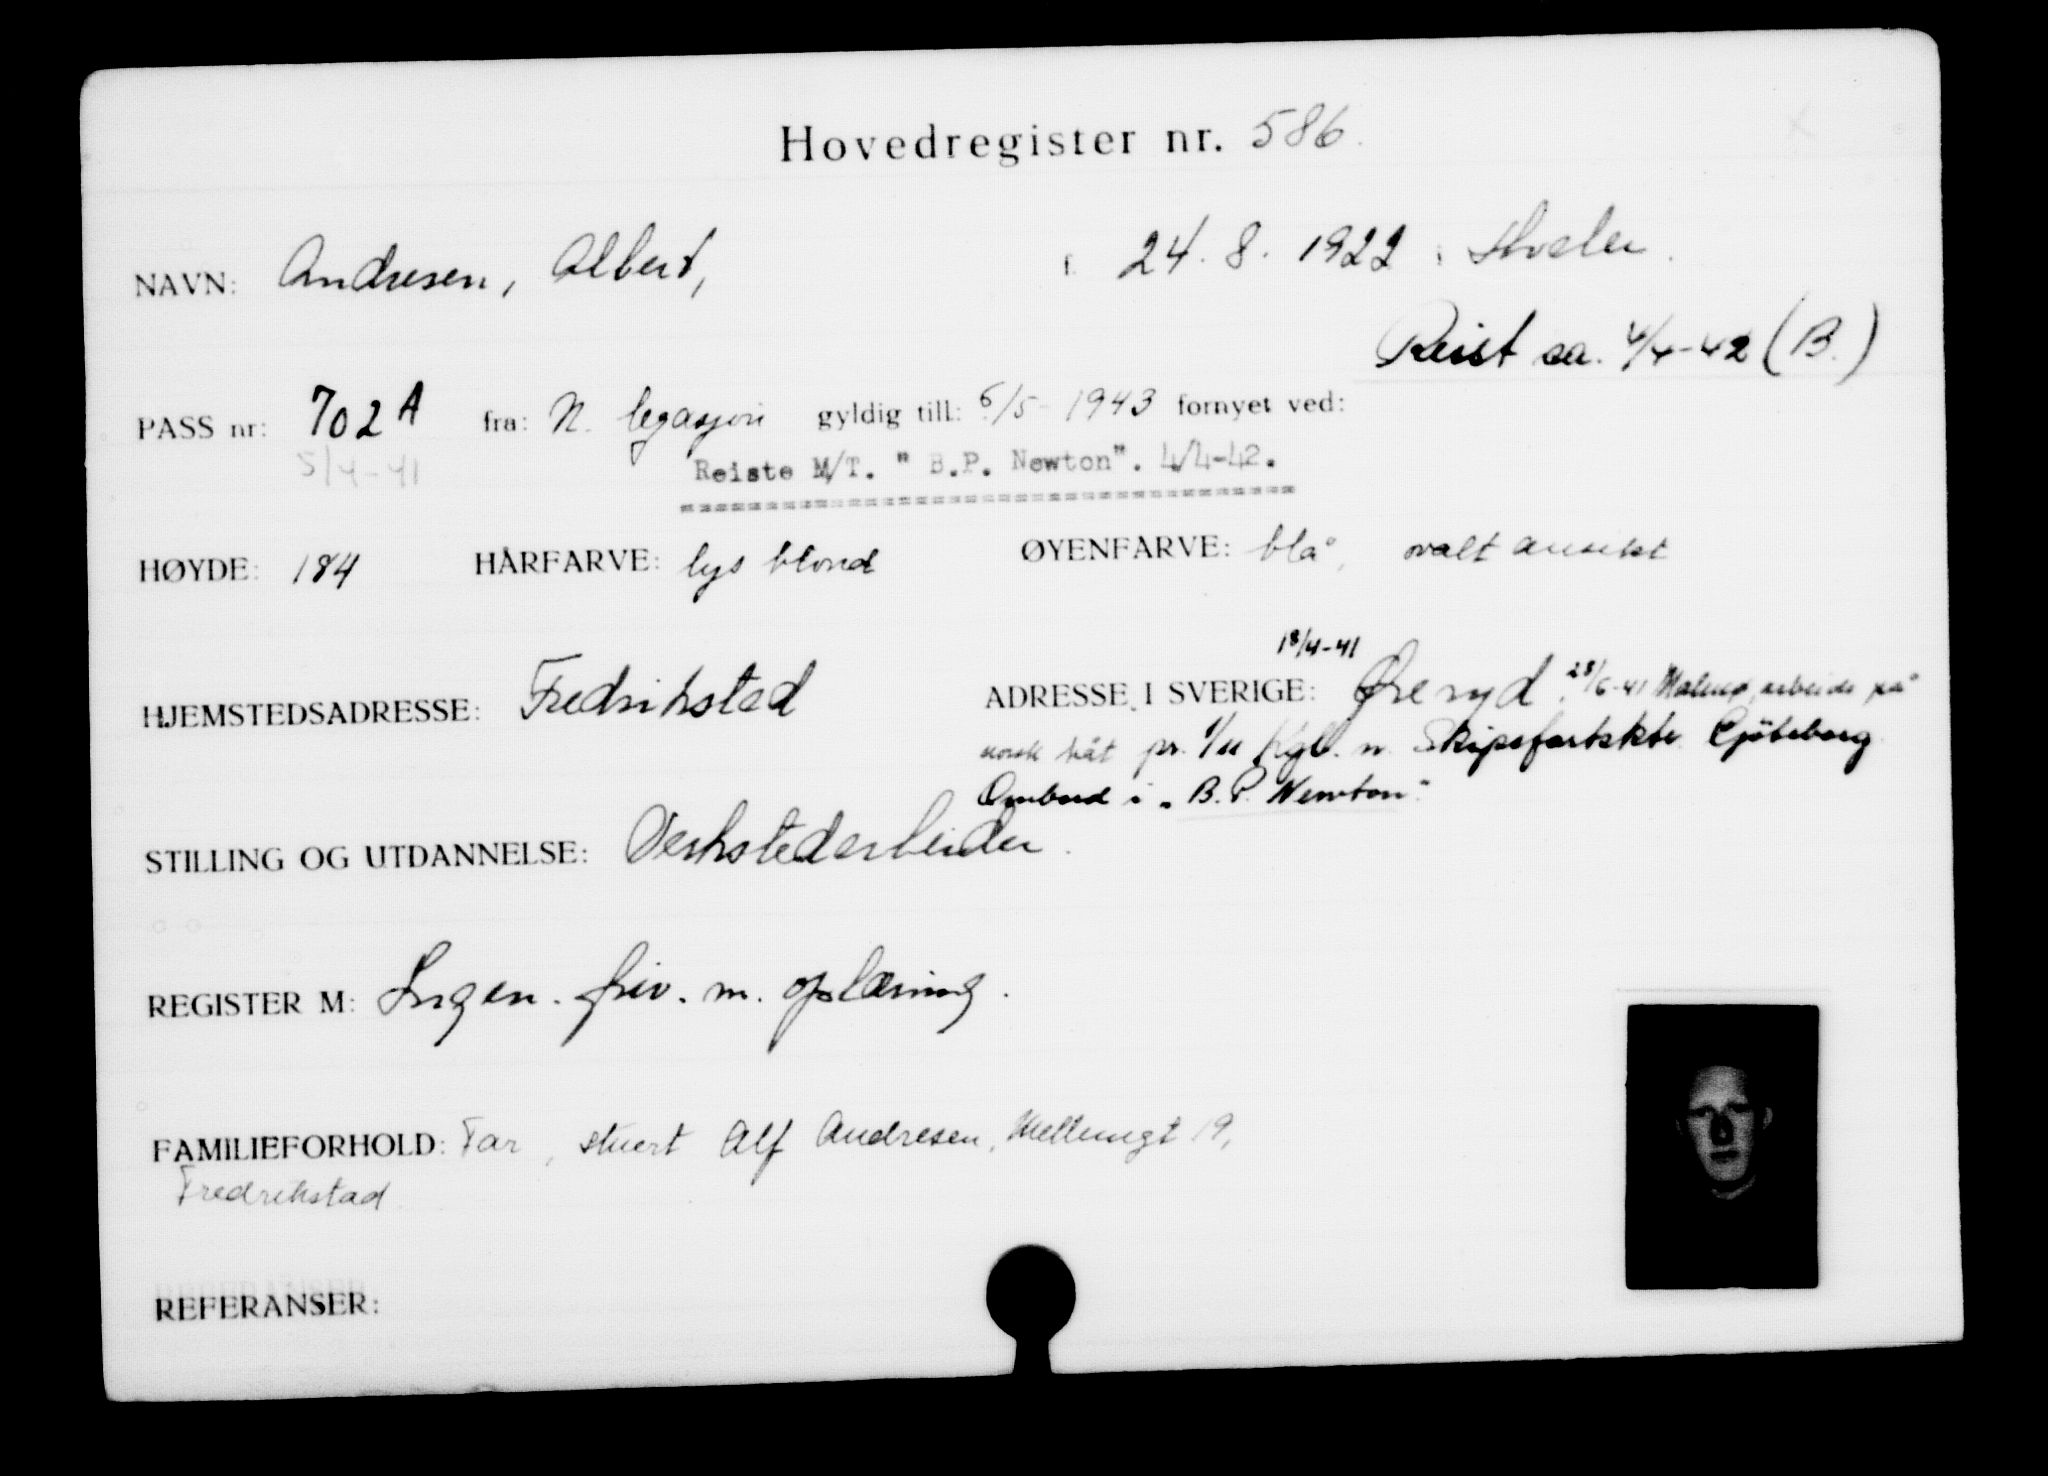 Hovedregister nr. 586.
NAVN: Andresen, Albert, f. 24. 8. 1922 i Hvaler.
Reist ca. 4/4-42 (B.)
PASS nr: 702 A fra: N. legasjon gyldig till: 6/5-1943 fornyet ved:
5/4-41 Reiste M/T. " B.P. Newton". 4/4-42.
HØYDE: 184 HÅRFARVE: lys blond ØYENFARVE: blå, ovalt ansikt
18/4-41
HJEMSTEDSADRESSE: Fredrikstad ADRESSE I SVERIGE: Øreryd, 28/6-41 Malmø, arbeide på
norsk båt pr. 1/11 Kgl. n. Skipsfartsktr. Gjöteborg
Ombord i "B.P. Newton"
STILLING OG UTDANNELSE: Verkstedarbeider.
REGISTER M: Ingen. friv. m. oplæring.
FAMILIEFORHOLD: Far, stuert Alf Andresen, Mellumgt 19,
Fredrikstad.
REFERANSER: